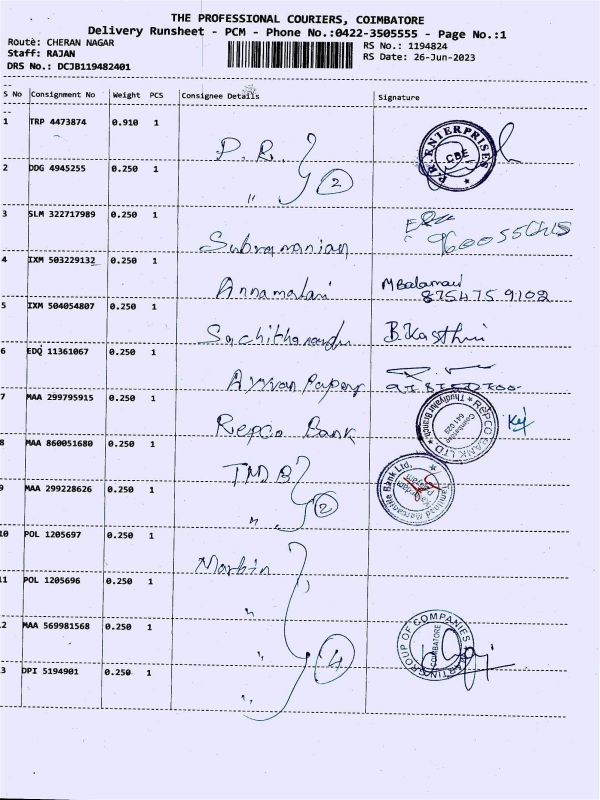 THE PROFESSIONAL COURIERS, COIMBATORE
Delivery Runsheet - PCM - Phone No.:0422-3505555 - Page No.:1
Route: CHERAN NAGAR
RS No.: 1194824
Staff: RAJAN
RS Date: 26-Jun-2023
DRS No.: DCJB119482401
S No Consignment No Weight PCS Consignee Details Signature
1 TRP 4473874 0.910 1 P.R. P.R. ENTERPRISES CBE
2 DDG 4945255 0.250 1 " 2
3 SLM 322717989 0.250 1 Subramanian
4 IXM 503229132 0.250 1 Annamalai 875475 9102
5 IXM 504054807 0.250 1 B.Kasthuri
6 EDQ 11361067 0.250 1 Ayyan Papers
7 MAA 299795915 1 Repco Bank REPCO BANK LTD. Thudiyalur Branch Coimbatore 641 029
8 MAA 860051680 0.250 1 TMB Tamilnad Mercantile Bank Ltd.,
9 MAA 299228626 0.250 1 " 2
10 POL 1205697 0.250 1 Martin
11 POL 1205696 0.250 1 "
2 MAA 569981568 0.250 1 " 4 MARTIN GROUP OF COMPANIES COIMBATORE
3 DPI 5194901 0.250 1 "